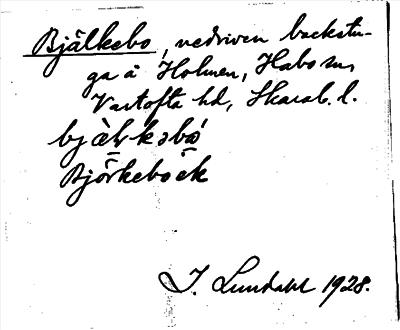 Bjälkebo, nedriven backstu-
ga å Holmen, Habo sn,
Vartofta hd, Skarab. l.
bjàḷkəbó
Björkeboek
I. Lundahl 1928.